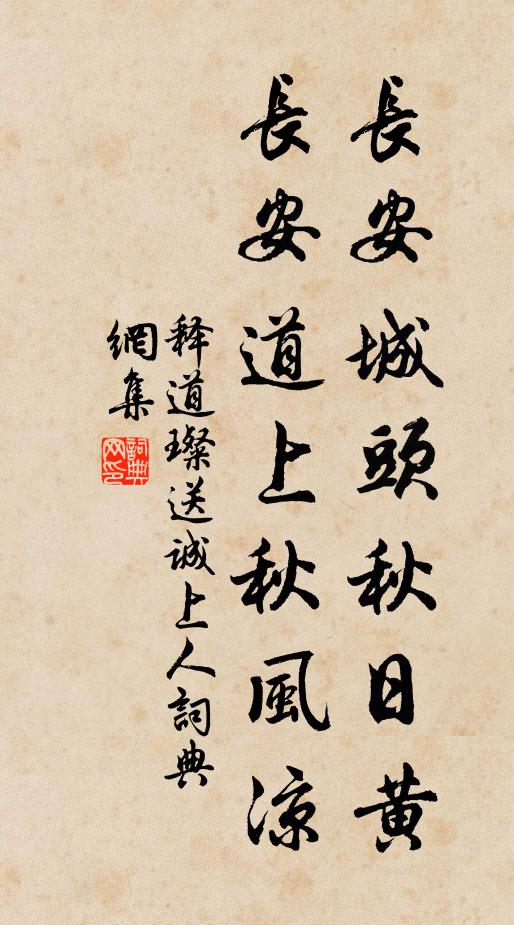 長安城頭秋日黃
長安道上秋風涼
释道璨送誠上人詞典
網集
詞典
网印